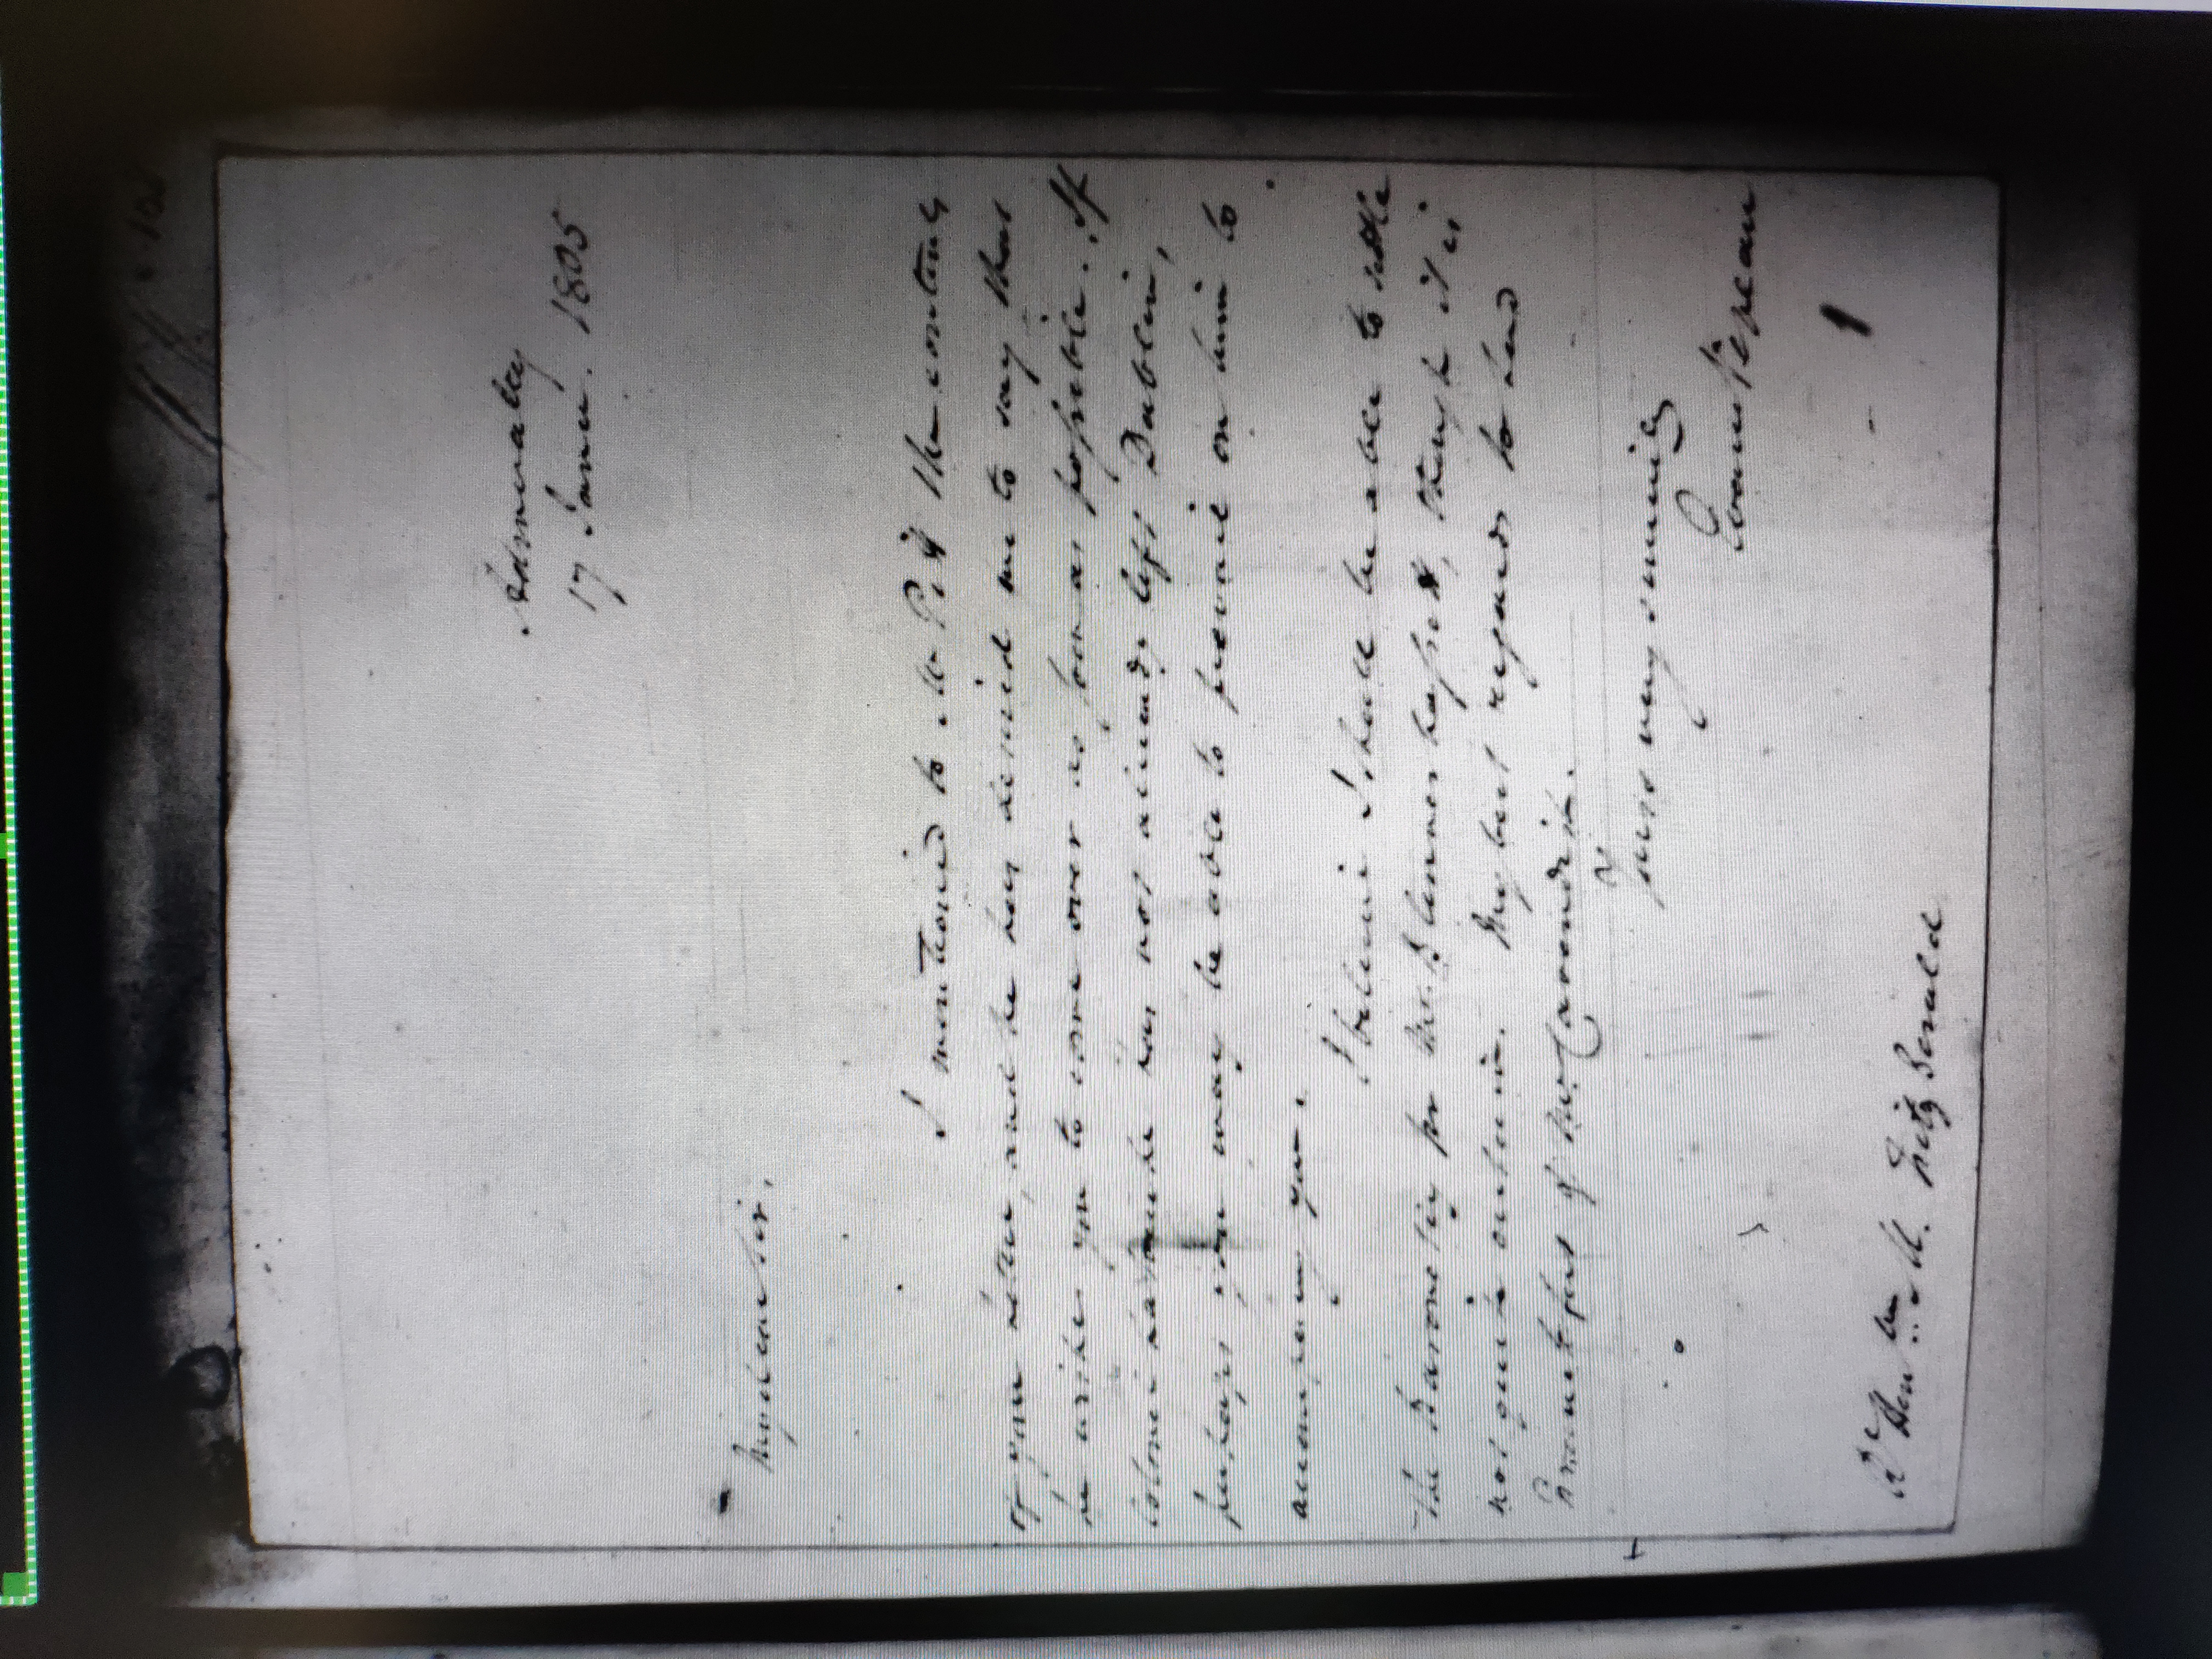 Admiralty
17 Janu. 1805
My dear Sir,
I mentioned to Mr Pitt the contents
of your letter, and he has desired me to say that
he wishes you to come over as soon as possible. If
has not already left Dublin,
perhaps you may be able to prevail on him to
accompany you.
I believe I shall be able to settle
the Baronetcy for Mr. Blennerhassett, though it is
not quite certain. My best regards to and
of
yrs very sincerely
Evan Nepean
Rt Honble M. Fitz Gerald